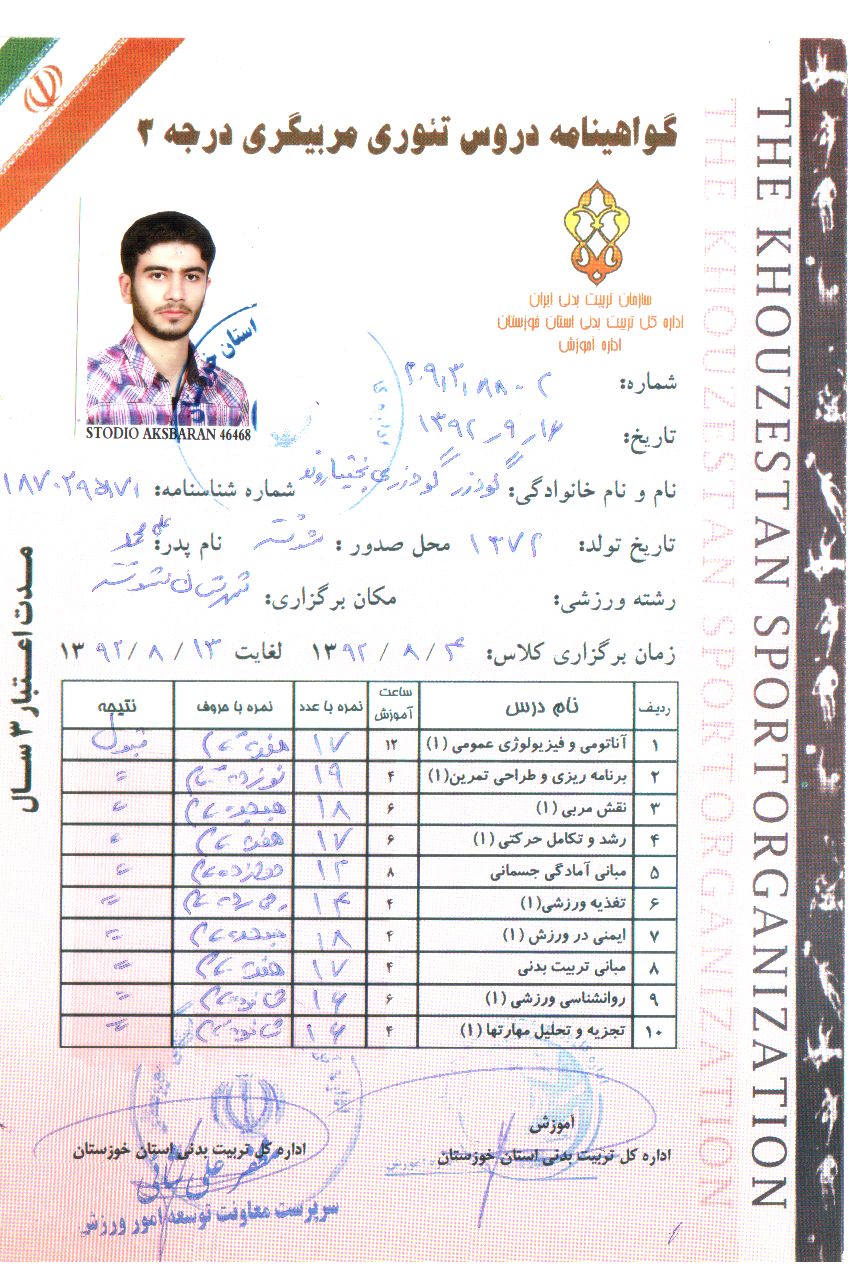 گواهینامه دروس تئوری مربیگری درجه ۳
سازمان تربیت بدنی ایران
اداره کل تربیت بدنی استان خوزستان
اداره آموزش
STODIO AKSBARAN 46468
شماره:
تاریخ: ۱۳۹۲-۹-۱۶
نام و نام خانوادگی: گودرز گودرزی بختیاروند شماره شناسنامه:
تاریخ تولد: ۱۳۷۲ محل صدور: شوشتر نام پدر: علی محمد
رشته ورزشی: مکان برگزاری: شهرستان شوشتر
زمان برگزاری کلاس: ۴ / ۸ / ۱۳۹۲ لغایت ۱۳ / ۸ / ۱۳۹۲
ردیف نام درس ساعت آموزش نمره با عدد نمره با حروف نتیجه
۱ آناتومی و فیزیولوژی عمومی (۱) ۱۲ ۱۷ هفده تمام قبول
۲ برنامه ریزی و طراحی تمرین(۱) ۴ ۱۹ نوزده تمام =
۳ نقش مربی (۱) ۶ ۱۸ هیجده تمام =
۴ رشد و تکامل حرکتی (۱) ۶ ۱۷ هفده تمام =
۵ مبانی آمادگی جسمانی ۸ ۱۲ دوازده تمام =
۶ تغذیه ورزشی(۱) ۴ =
۷ ایمنی در ورزش (۱) ۴ ۱۸ هیجده تمام =
۸ مبانی تربیت بدنی ۴ ۱۷ هفده تمام =
۹ روانشناسی ورزشی (۱) ۶ ۱۶ شانزده تمام =
۱۰ تجزیه و تحلیل مهارتها (۱) ۴ ۱۶ شانزده تمام =
مدت اعتبار ۳ سال
آموزش
اداره کل تربیت بدنی استان خوزستان
اداره کل تربیت بدنی استان خوزستان
سرپرست معاونت توسعه امور ورزش
THE KHOUZESTAN SPORTORGANIZATION
THE KHOUZESTAN SPORTORGANIZATION